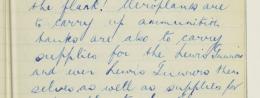 the flank. Aeroplanes are
to carry up ammunition
tanks are also to carry
supplies for the Lewis Gunners
and even Lewis Gunners them
selves as well as supplies for